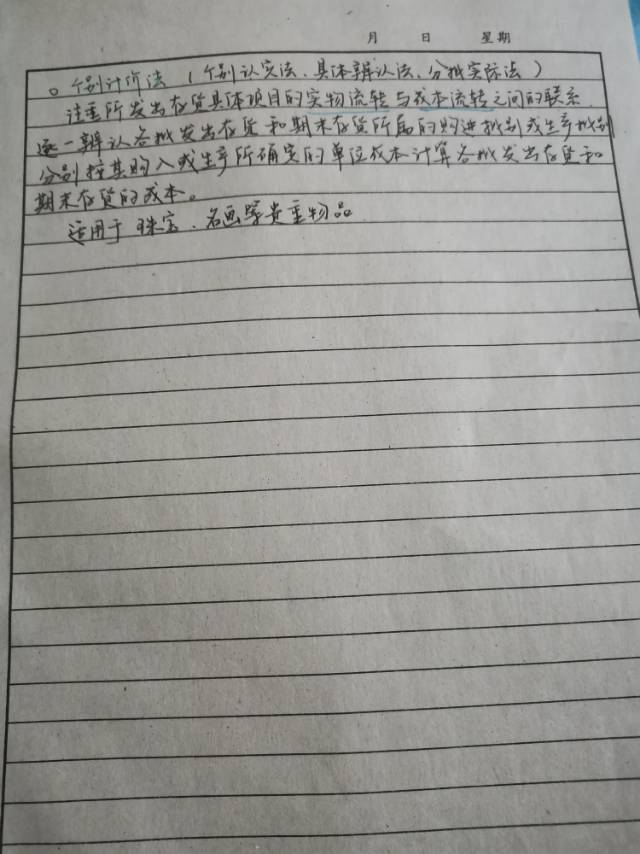 月 日 星期
。个别计价法（个别认定法、具体辨认法、分批实际法）
注重所发出存货具体项目的实物流转与成本流转之间的联系.
逐一辨认各批发出存货和期末存货所属的购进批别或生产批别
分别按其购入或生产所确定的单位成本计算各批发出存货和
期末存货的成本。
适用于珠宝、名画等贵重物品